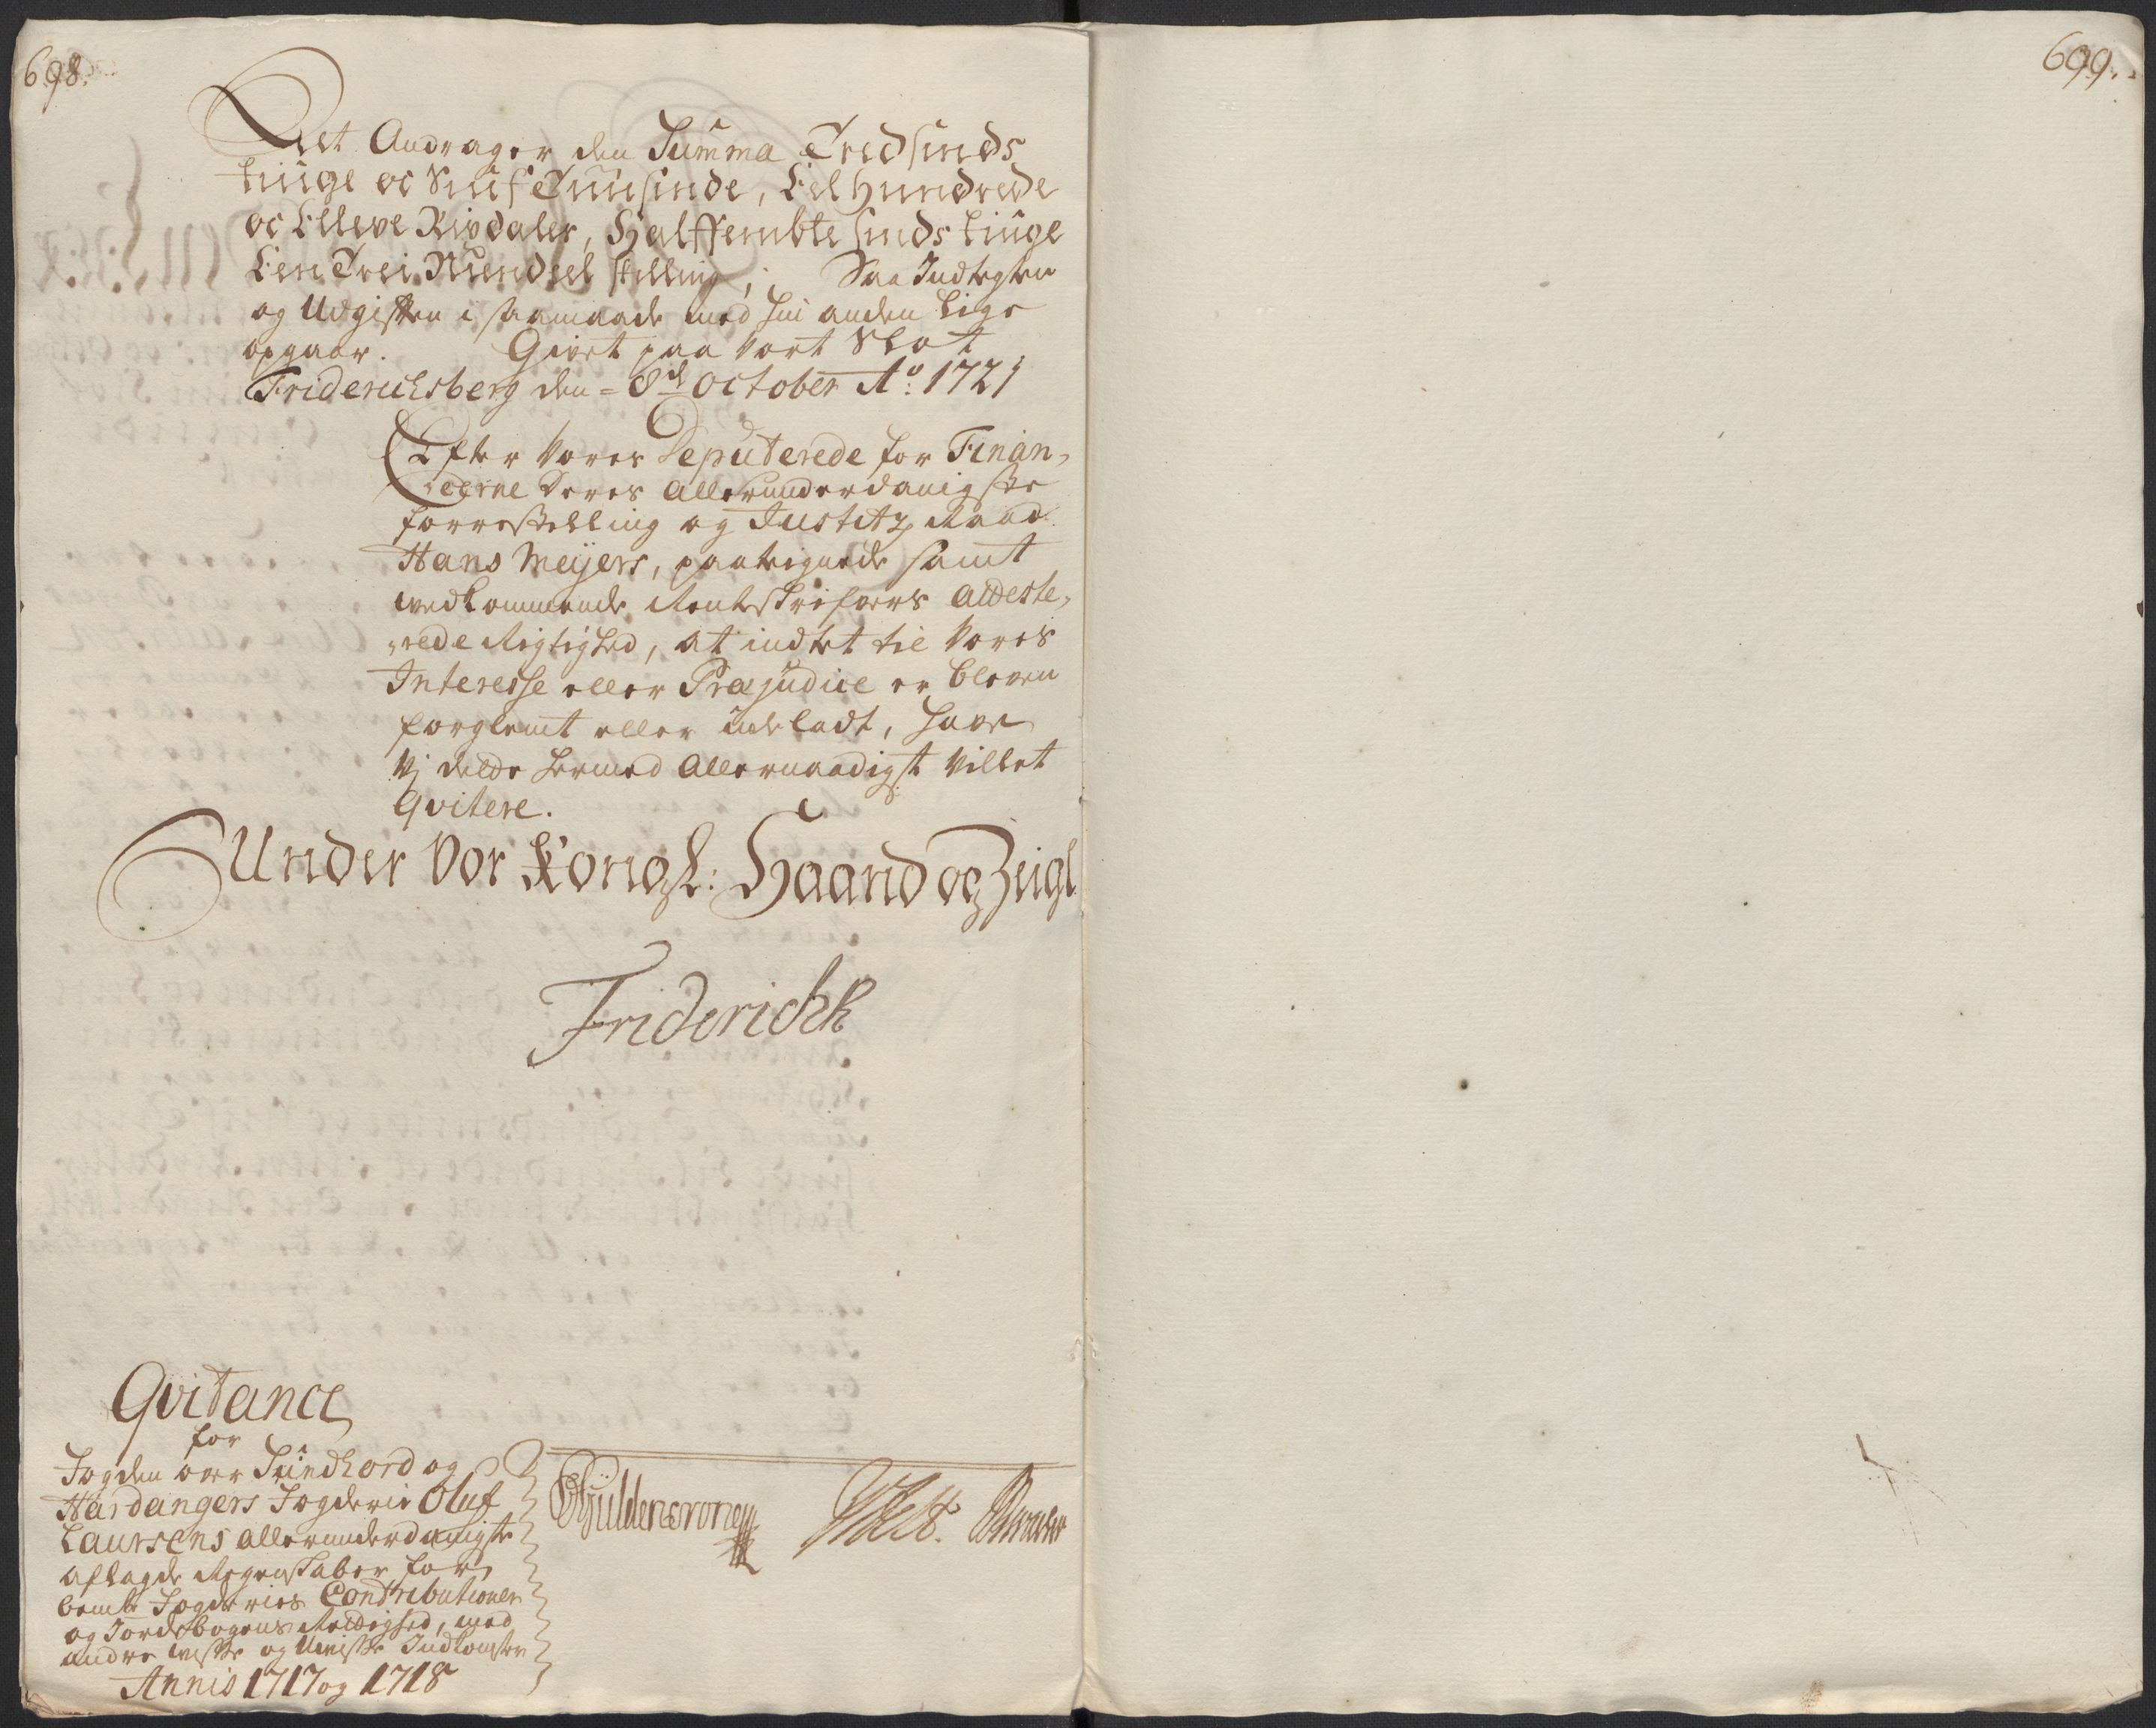 698.
699.
Det Andrager den Summa Tredsinds
tiuge oc Siuf Tuusinde, Eet hundrede
oc Elleve Rixdaler, Halffembte sinds tiuge
Een Trei Nundeel skilling; Saa Indtegten
og Udgiften i saamaade med hin anden lige
opgaar. Givet paa Vort Slot
Friderichsberg den = 8de October Ao. 1721
Efter Vores Deputerede for Finan-
cerne deres allerunderdanigste
forrestilling og Justitz Raad
Hans Meÿers, paategnede samt
vedkommende Rentskrifvers atteste-
rede Rigtighed, at indtet til Vores
Interesse eller Præjudice er bleven
forglemt eller udeladt, have
Vj dette hermed Allernaadigst Villet
Qvitere.
Under Vor Kongl: Haand oc Zeigl
Friderich R
Qvitance
for
Fogden over Sundhord og
Hardangers Fogderie Oluf
Laursens allerunderdanigste
aflagde Regenskaber for
bemte Fogderies Contributioner
og Jordebogens Rettighed, med
andre visse og Uvisse Indkomster
Annis 1717 og 1718
CGuldencrone